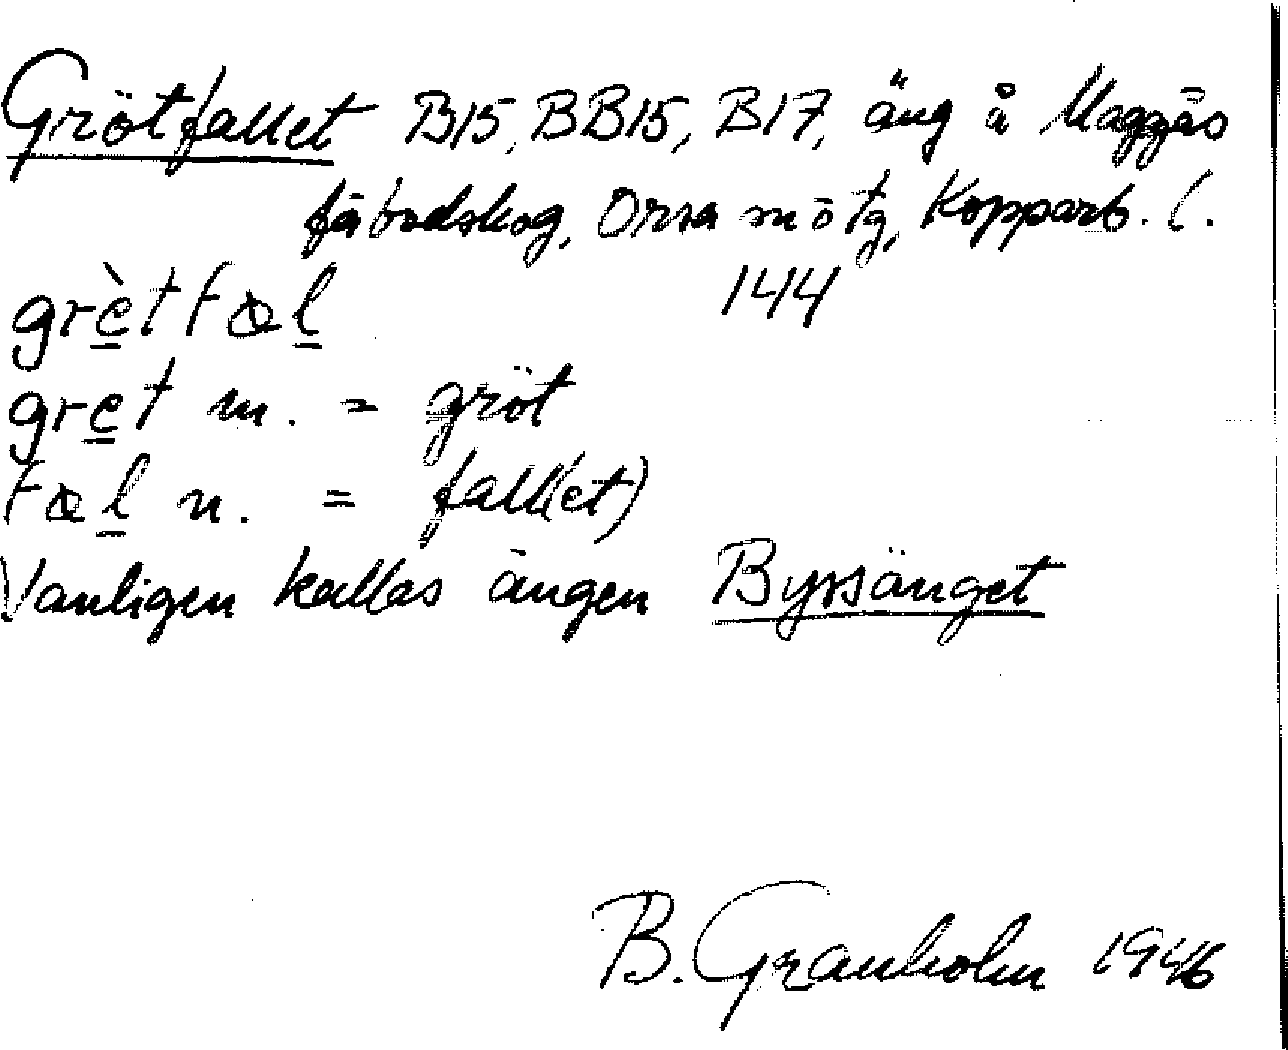 Grötfallet B15, BB15, B17, äng å Maggås
fäbodskog, Orsa mötg, Kopparb. l.
144
grètfɶl
gret m. = gröt
fɶl n. = fall(et)
Vanligen kallas ängen Byssänget
B. Granholm 1946